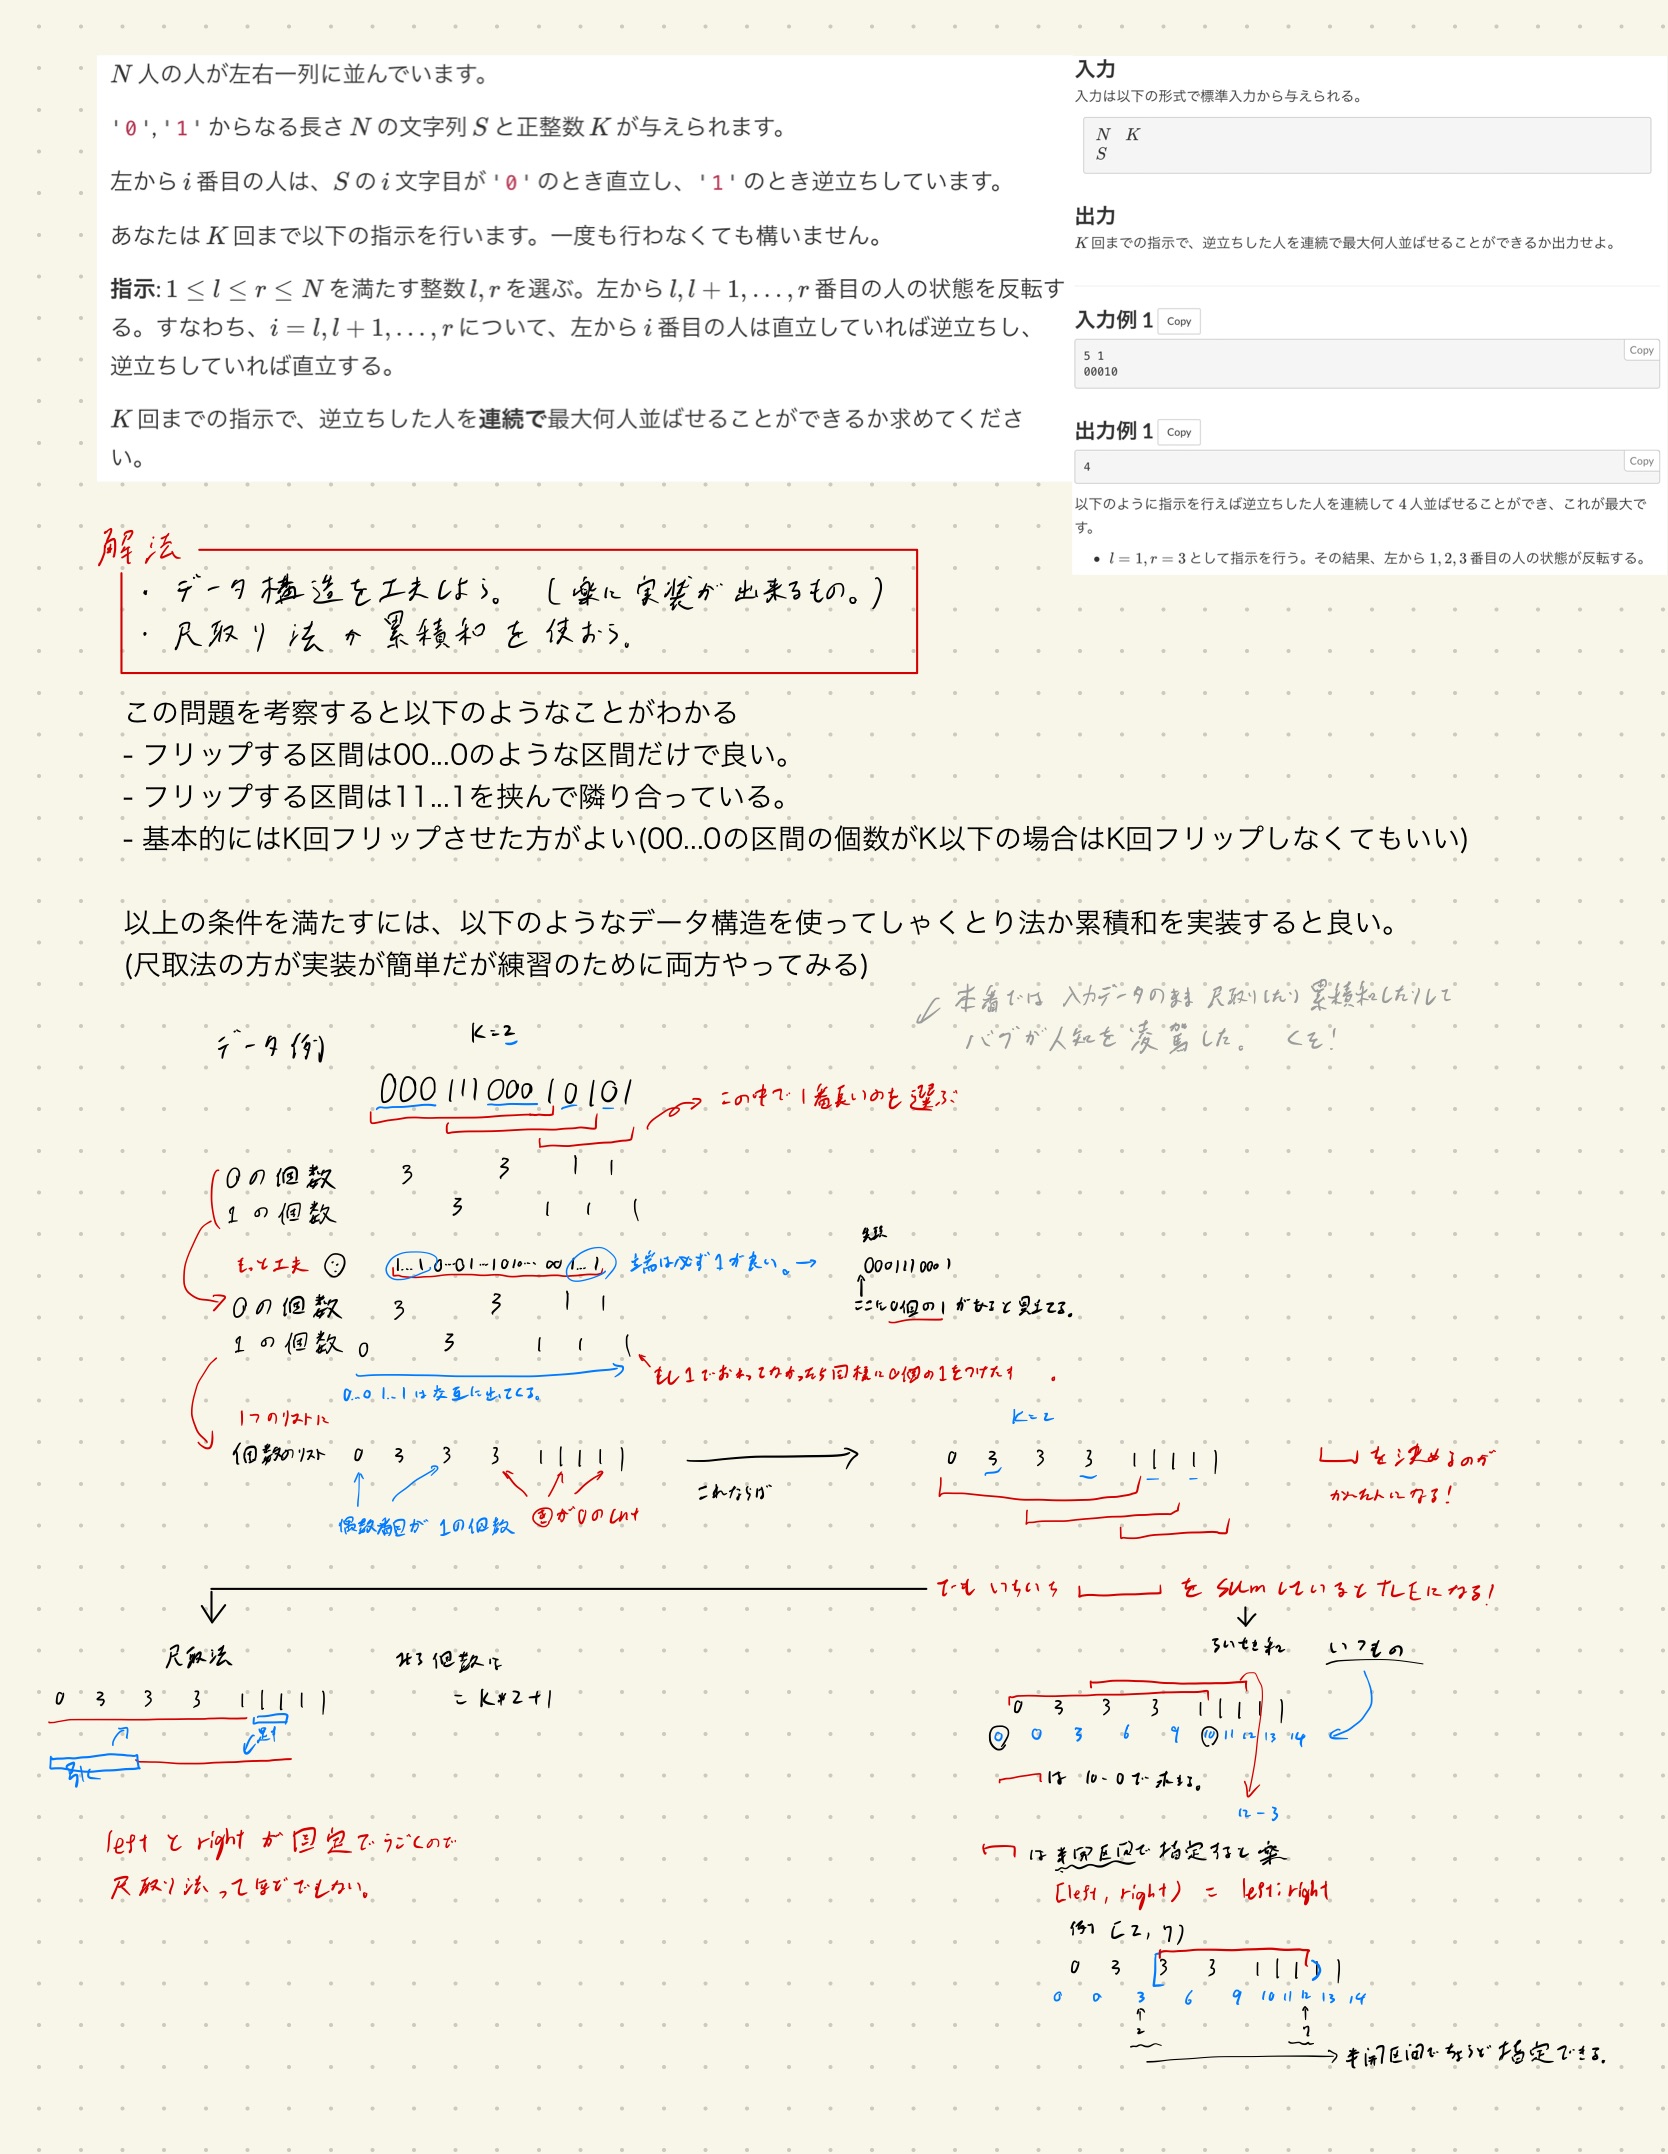 N 人の人が左右一列に並んでいます。
'0','1' からなる長さ N の文字列 S と正整数 K が与えられます。
左から i 番目の人は、S の i 文字目が '0' のとき直立し、'1' のとき逆立ちしています。
あなたは K 回まで以下の指示を行います。一度も行わなくても構いません。
指示: 1 ≤ l ≤ r ≤ N を満たす整数 l, r を選ぶ。左から l, l + 1, . . . , r 番目の人の状態を反転す
る。すなわち、i = l, l + 1, . . . , r について、左から i 番目の人は直立していれば逆立ちし、
逆立ちしていれば直立する。
K 回までの指示で、逆立ちした人を連続で最大何人並ばせることができるか求めてくださ
い。
入力
入力は以下の形式で標準入力から与えられる。
N K
S
出力
K 回までの指示で、逆立ちした人を連続で最大何人並ばせることができるか出力せよ。
入力例 1 Copy
Copy
5 1
00010
出力例 1 Copy
Copy
4
以下のように指示を行えば逆立ちした人を連続して 4 人並ばせることができ、これが最大で
す。
• l = 1, r = 3 として指示を行う。その結果、左から 1, 2, 3 番目の人の状態が反転する。
解法
・ データ構造を工夫しよう。 (楽に実装が出来るもの。)
・ 尺取り法か累積和を使おう。
この問題を考察すると以下のようなことがわかる
- フリップする区間は00...0のような区間だけで良い。
- フリップする区間は11...1を挟んで隣り合っている。
- 基本的にはK回フリップさせた方がよい(00...0の区間の個数がK以下の場合はK回フリップしなくてもいい)
以上の条件を満たすには、以下のようなデータ構造を使ってしゃくとり法か累積和を実装すると良い。
(尺取法の方が実装が簡単だが練習のために両方やってみる)
本番では 入力データのまま 尺取りしたり 累積和したりして
バグが人知を凌駕した。 くそ!
データ例 K=2
00011100010101
この中で1番長いのを選ぶ
0の個数 3 3 1 1
1の個数 3 1 1 1
もっと工夫 1...1 0...01...1010... 00 1...1 端は必ず1が良い。→
実際
0001110001
ここに0個の1があると見立てる。
0の個数 3 3 1 1
1の個数 0 3 1 1 1
もし1でおわってなかったら同様に0個の1をつけたす.
0...0 1...1 は交互に出てくる。
1つのリストに
個数のリスト 0 3 3 3 1 1 1 1 1
偶数番目が 1の個数
奇が0のcnt
これならば
K=2
0 3 3 3 1 1 1 1 1
を決めるのが
かんたんになる!
でも いちいち を sum しているとTLEになる!
尺取法
みる個数は
= K*2+1
0 3 3 3 1 1 1 1 1
足す
引く
left と right が固定でうごくので
尺取り法ってほどでもない。
るいせき和 いつもの
0 3 3 3 1 1 1 1 1
0 0 3 6 9 10 11 12 13 14
は 10-0で求まる。
12-3
は半開区間で指定すると楽
[left, right) = left:right
例 [2, 7)
0 3 [3 3 1 1 1) 1 1
0 0 3 6 9 10 11 12 13 14
2 7
半開区間でちょうど指定できる.